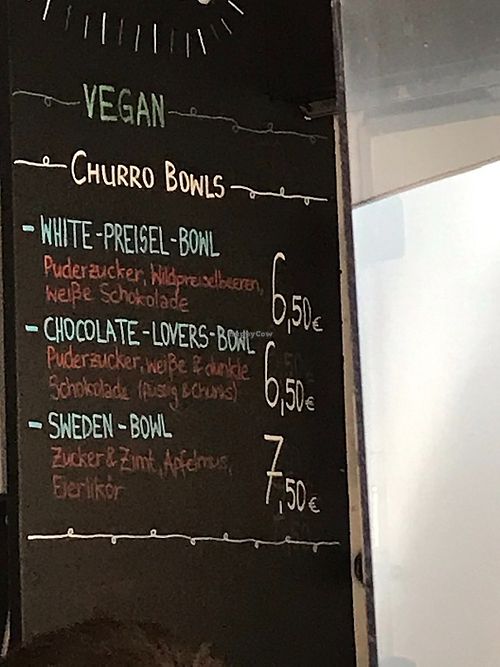 VEGAN
CHURRO BOWLS
- WHITE-PREISEL-BOWL
Puderzucker, Wildpreiselbeeren,
weiße Schokolade
6,50€
- CHOCOLATE-LOVERS-BOWL
Puderzucker, weiße & dunkle
Schokolade (flüssig & Chunks)
6,50€
- SWEDEN-BOWL
Zucker & Zimt, Apfelmus,
Eierlikör
7,50€